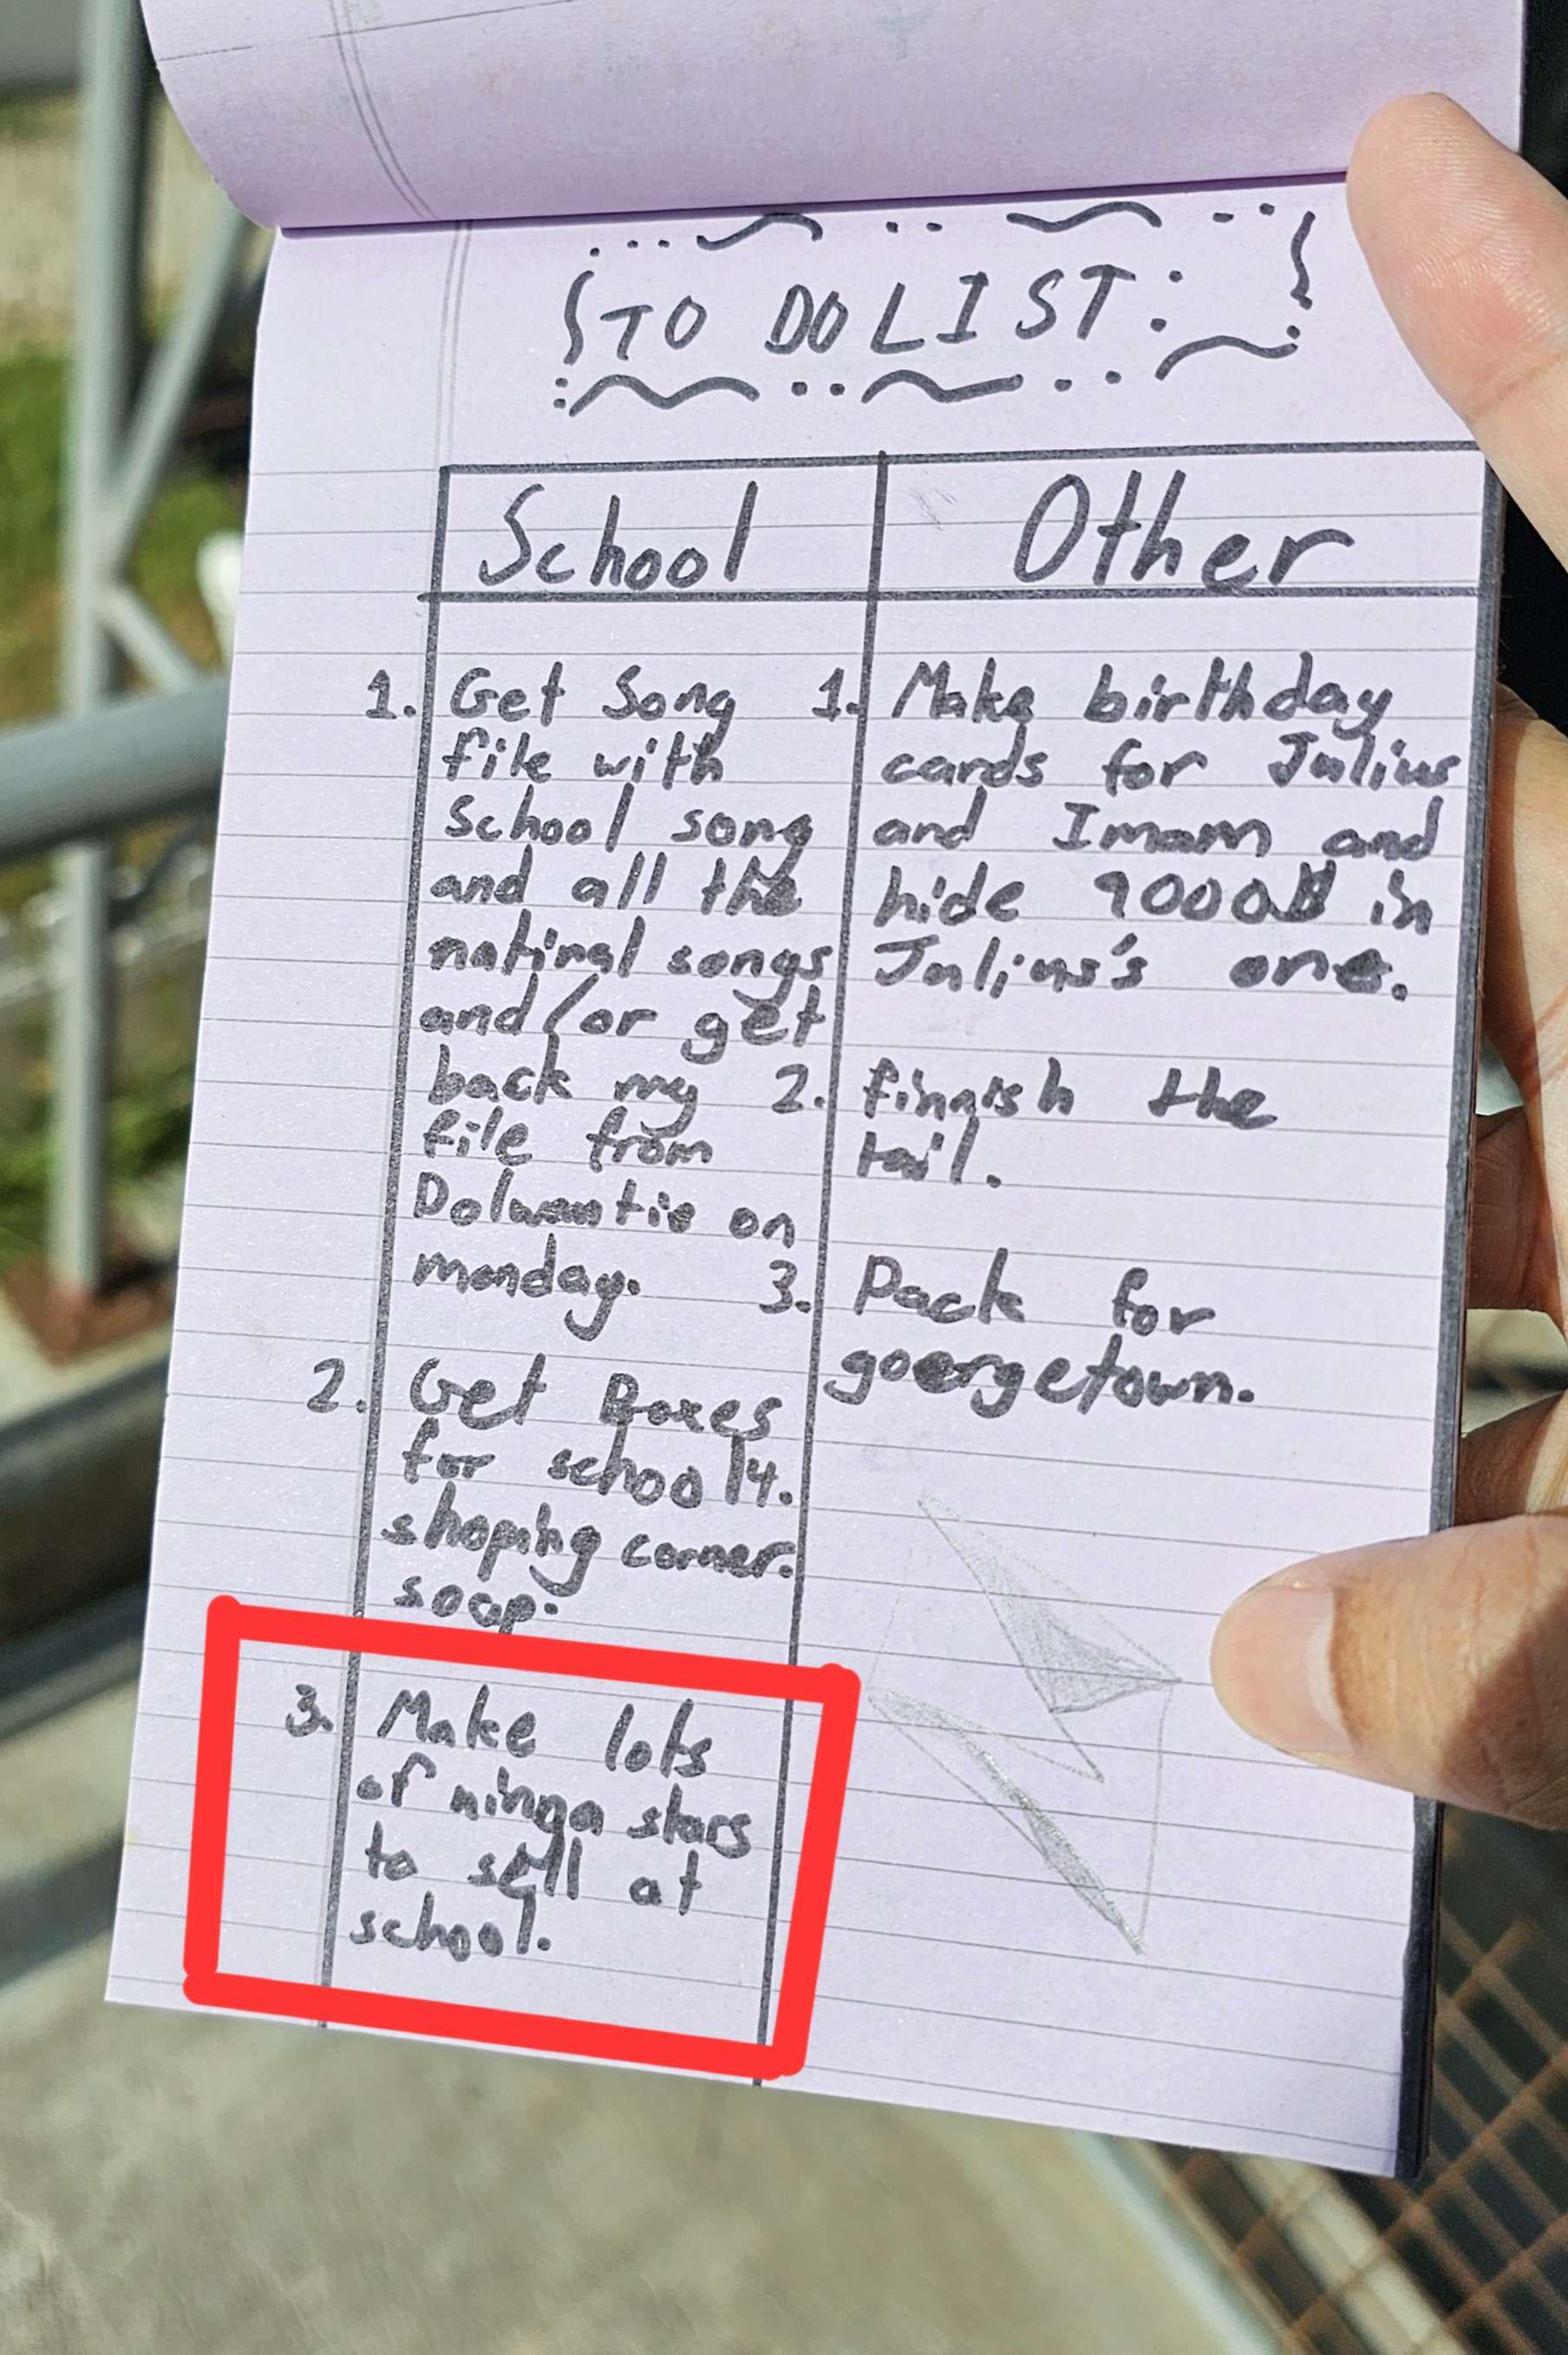 TO DO LIST:
School
1. Get Song
file with
School song
and all the
natinal songs
and/or get
back my
file from
on
monday.
2. Get Boxes
for school 4.
shoping corner.
soap.
3. Make lots
of ninga stars
to sell at
school.
Other
1. Make birthday
cards for Julius
and Imam and
hide in
Julius's one.
2. finnish the
tail.
3. Pack for
goergetown.